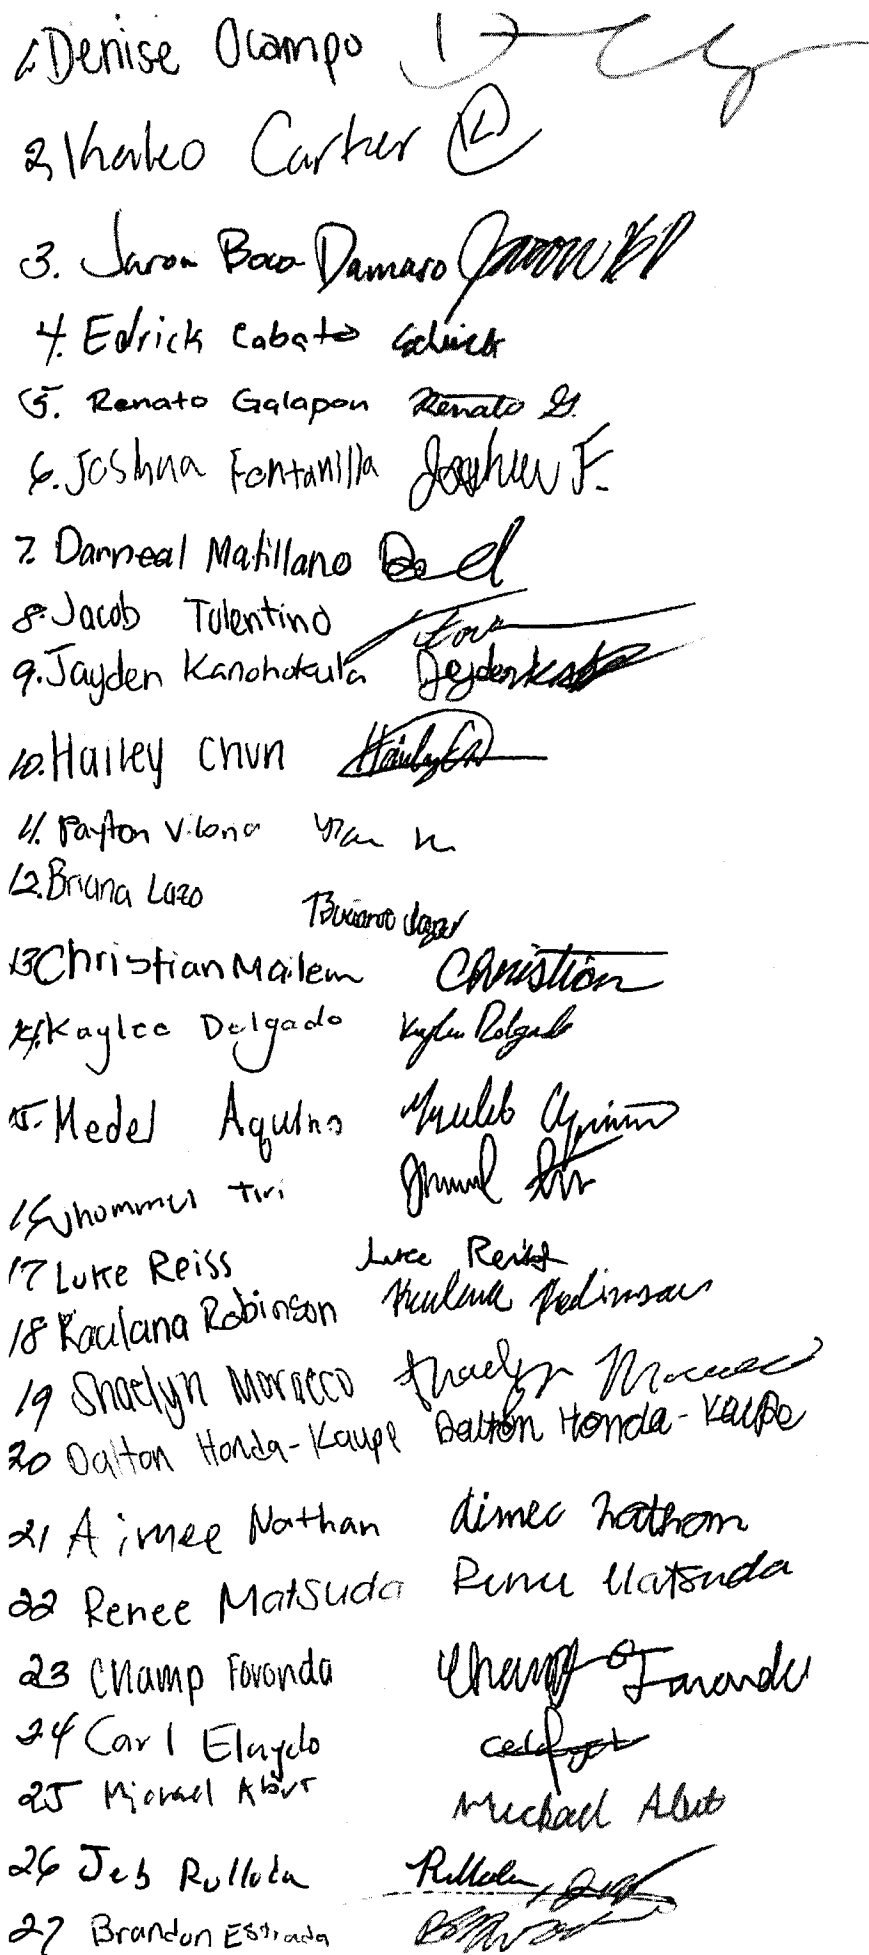 1. Denise Ocampo
2. Carter
3. Jaron Damaso
4. Edrick Cabato Edrick
5. Renato Galapon Renato G.
6. Joshua Fontanilla Joshua F.
7. Danneal Matillano
8. Jacob Tolentino
9. Jayden Kanohokula
10. Hailey Chun
11. Payton
12. Briana Lazo
13 Christian Mailem Christian
14. Kaylee Delgado Kaylee Delgado
15. Medel Aquino
16. Tiri
17 Luke Reiss Luke Reiss
18 Kaulana Robinson Kaulana Robinson
19 Shaelyn Morocco Shaelyn Morocco
20 Dalton Honda-Kaupe Dalton Honda-Kaupe
21 Aimee Nathan Aimee Nathan
22 Renee Matsuda Renee Matsuda
23 Champ Faronda Champ Faronda
24 Carl
25 Michael Abut Michael Abut
26 Jeb
27 Brandon Estrada